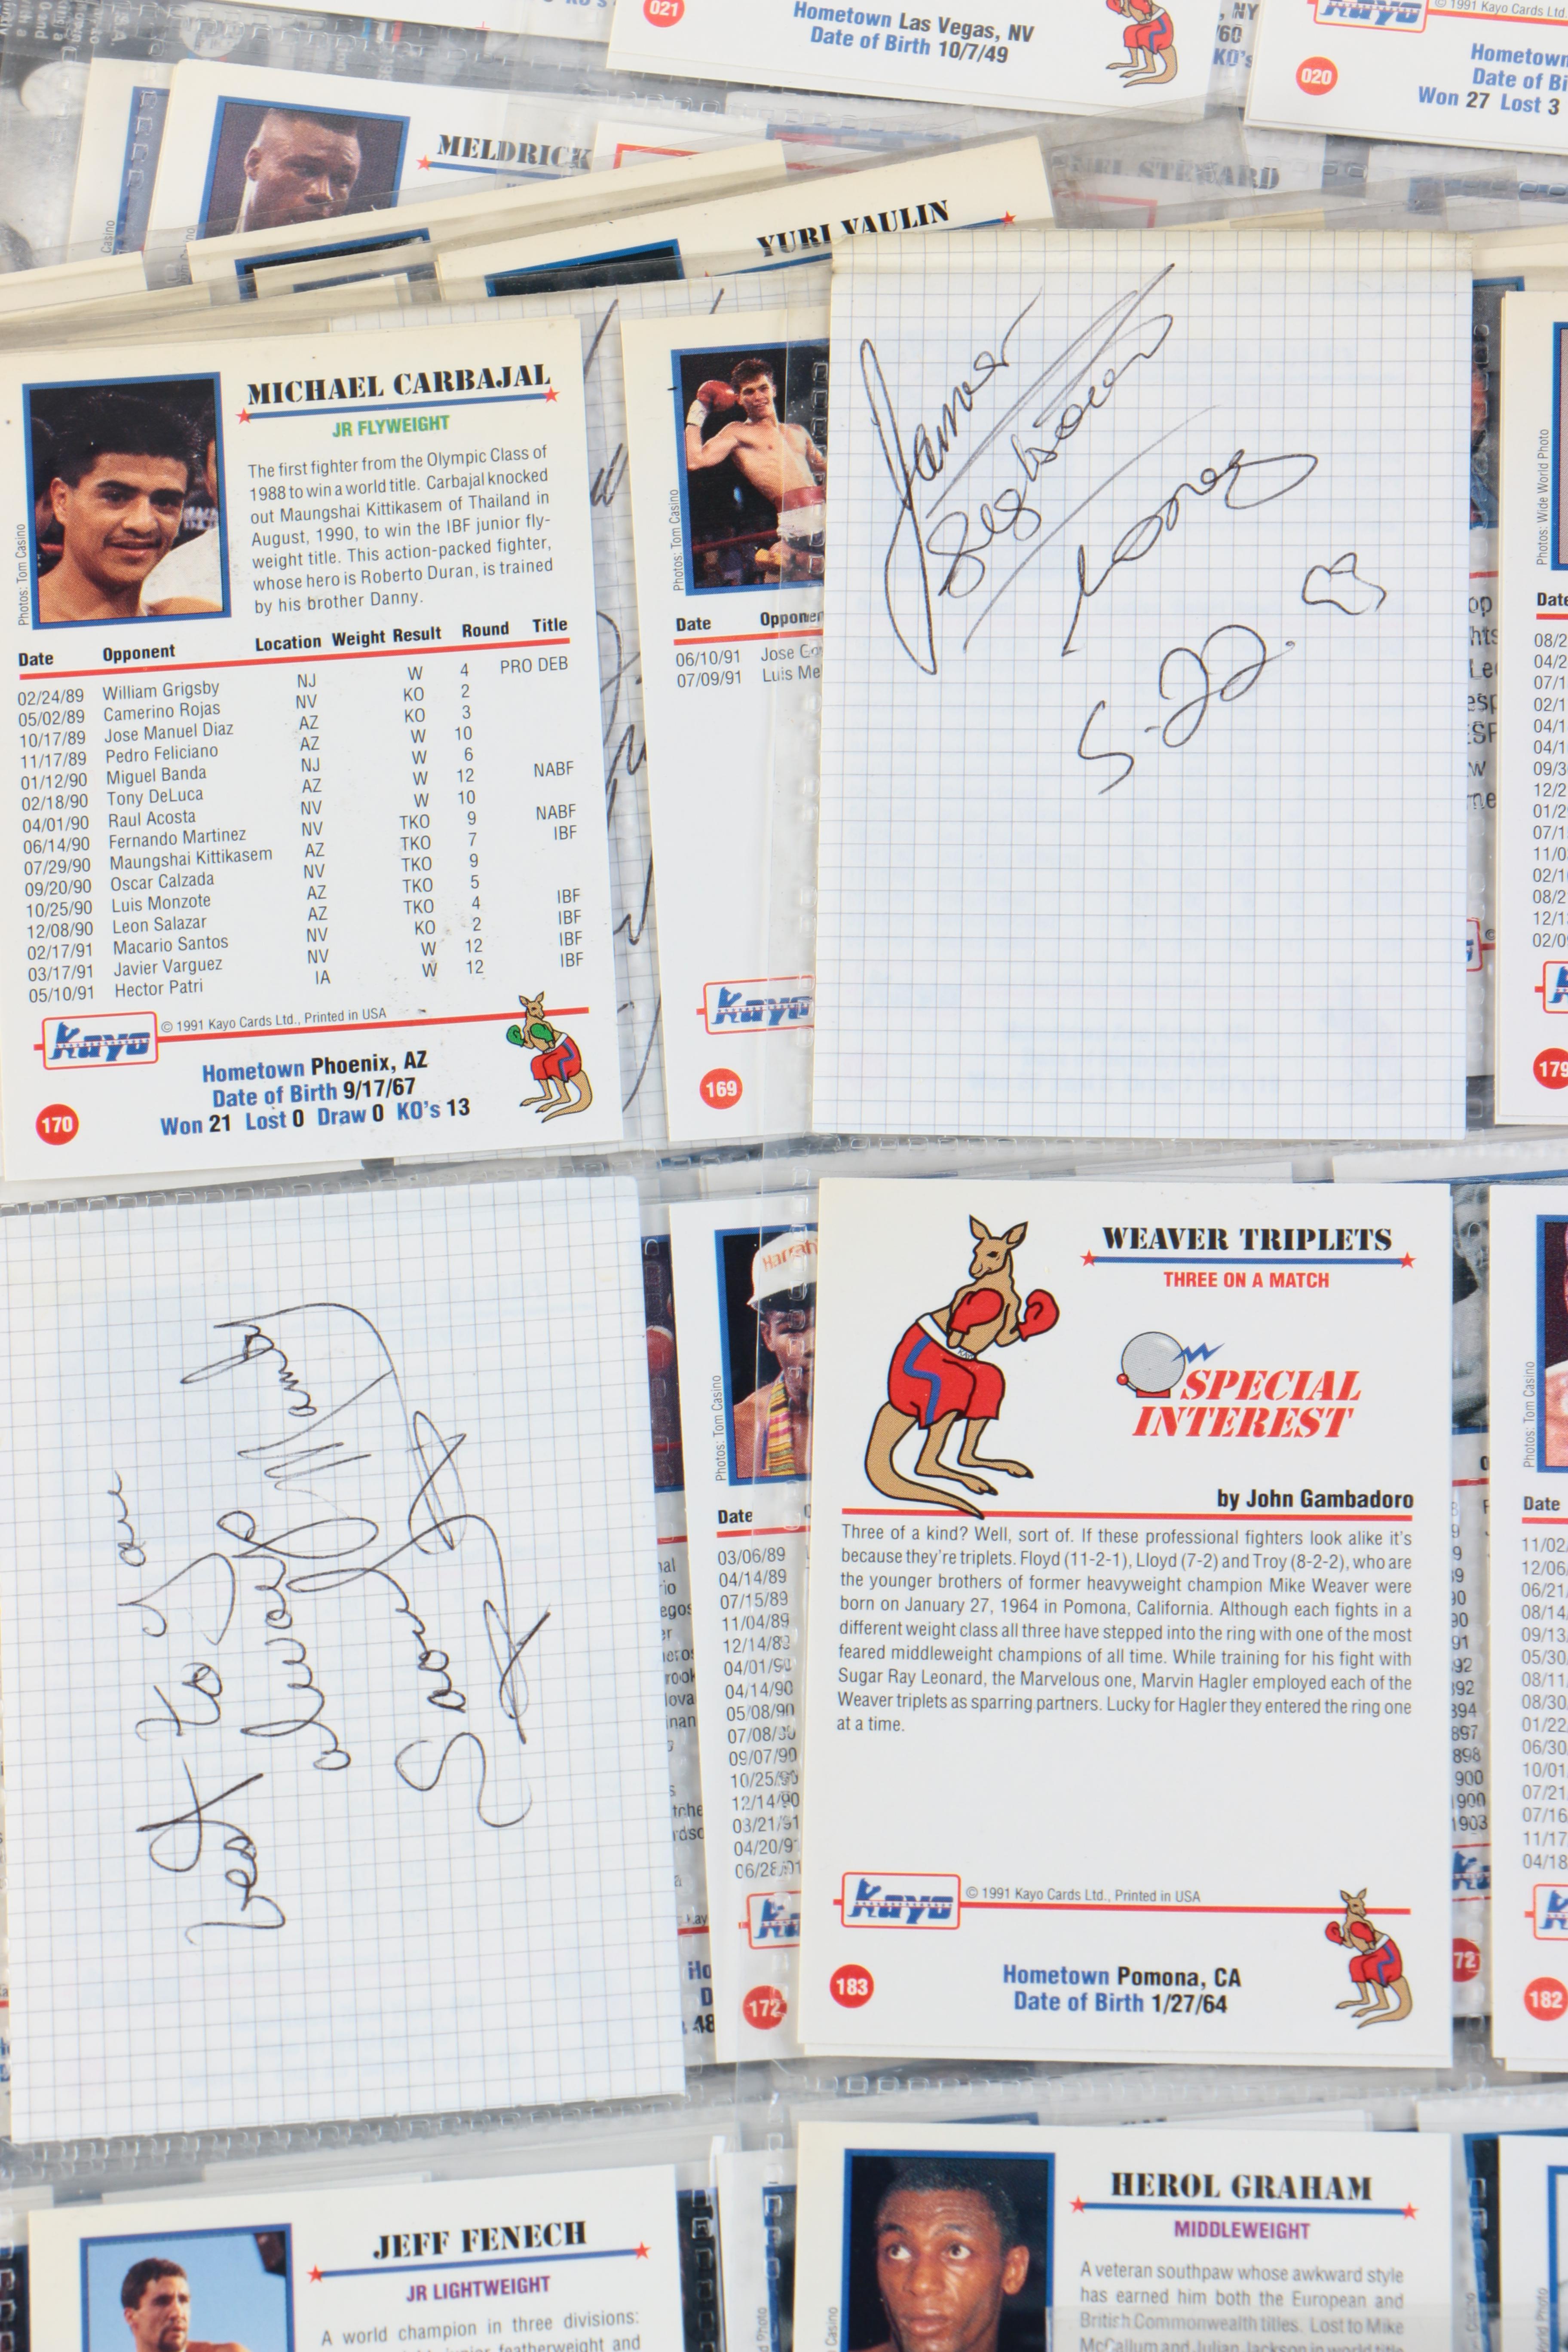 021
Hometown Las Vegas, NV
Date of Birth 10/7/49
, NY
/60
KO's
Kayo © 1991 Kayo Cards Ltd.
020
Hometown
Date of Bi
Won 27 Lost 3
MELDRICK
YURI VAULIN
STEWARD
Photos: Tom Casino
MICHAEL CARBAJAL
JR FLYWEIGHT
The first fighter from the Olympic Class of
1988 to win a world title. Carbajal knocked
out Maungshai Kittikasem of Thailand in
August, 1990, to win the IBF junior fly-
weight title. This action-packed fighter,
whose hero is Roberto Duran, is trained
by his brother Danny.
Date Opponent Location Weight Result Round Title
02/24/89 William Grigsby NJ W 4 PRO DEB
05/02/89 Camerino Rojas NV KO 2
10/17/89 Jose Manuel Diaz AZ KO 3
11/17/89 Pedro Feliciano AZ W 10
01/12/90 Miguel Banda NJ W 6
02/18/90 Tony DeLuca AZ W 12 NABF
04/01/90 Raul Acosta NV W 10
06/14/90 Fernando Martinez NV TKO 9 NABF
07/29/90 Maungshai Kittikasem AZ TKO 7 IBF
09/20/90 Oscar Calzada NV TKO 9
10/25/90 Luis Monzote AZ TKO 5
12/08/90 Leon Salazar AZ TKO 4 IBF
02/17/91 Macario Santos NV KO 2 IBF
03/17/91 Javier Varguez NV W 12 IBF
05/10/91 Hector Patri IA W 12 IBF
Kayo © 1991 Kayo Cards Ltd., Printed in USA
Hometown Phoenix, AZ
Date of Birth 9/17/67
170
Won 21 Lost 0 Draw 0 KO's 13
Photos: Tom Casino
Date Opponen
06/10/91 Jose Go
07/09/91 Luis Me
Kayo
169
James
Leonez
S-22.
Photos: Wide World Photo
Date
08/2
04/2
07/1
02/1
04/1
04/1
09/3
12/2
01/2
07/1
11/0
02/1
08/2
12/1
02/0
179
Best to you
always
Harrah
Photos: Tom Casino
Date
03/06/89
04/14/89
07/15/89
11/04/89
12/14/89
04/01/90
04/14/90
05/08/90
07/08/90
09/07/90
10/25/90
12/14/90
03/21/91
04/20/91
06/28/91
172
WEAVER TRIPLETS
THREE ON A MATCH
SPECIAL
INTEREST
by John Gambadoro
Three of a kind? Well, sort of. If these professional fighters look alike it's
because they're triplets. Floyd (11-2-1), Lloyd (7-2) and Troy (8-2-2), who are
the younger brothers of former heavyweight champion Mike Weaver were
born on January 27, 1964 in Pomona, California. Although each fights in a
different weight class all three have stepped into the ring with one of the most
feared middleweight champions of all time. While training for his fight with
Sugar Ray Leonard, the Marvelous one, Marvin Hagler employed each of the
Weaver triplets as sparring partners. Lucky for Hagler they entered the ring one
at a time.
Kayo © 1991 Kayo Cards Ltd., Printed in USA
183
Hometown Pomona, CA
Date of Birth 1/27/64
Photos: Tom Casino
Date
11/02
12/06
06/21
08/14
09/13
05/30
08/11
08/30
01/22
06/30
10/01
07/21
07/16
11/17
04/18
72
182
JEFF FENECH
JR LIGHTWEIGHT
A world champion in three divisions:
junior featherweight and
HEROL GRAHAM
MIDDLEWEIGHT
A veteran southpaw whose awkward style
has earned him both the European and
British Commonwealth titles. Lost to Mike
McCallum and Julian Jackson in world title